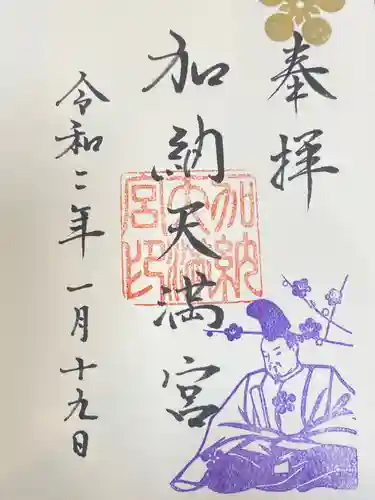 奉拝
加納天満宮
加納天満宮印
令和二年一月十九日